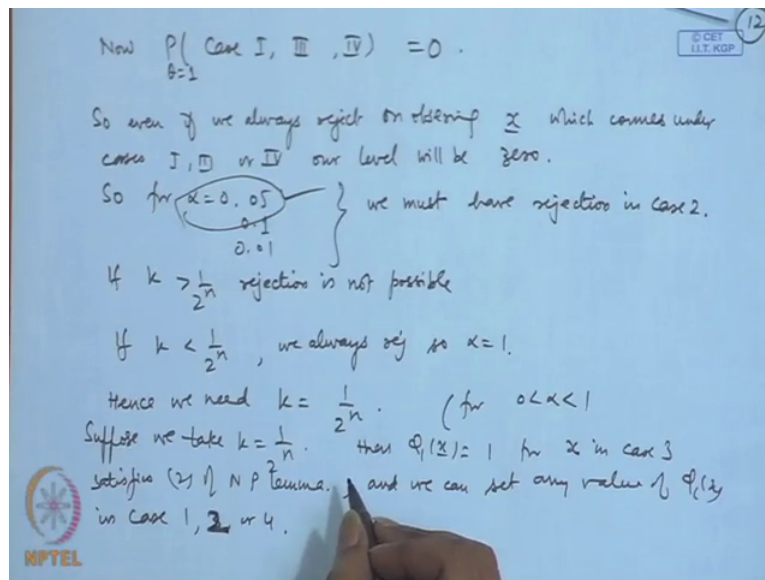 12
© CET
I.I.T. KGP
Now P ( Case I, III , IV ) = 0 .
θ=1
So even if we always reject on observing x which comes under
cases I, III or IV our level will be zero.
So for α = 0.05 } we must have rejection in case 2.
0.1
0.01
If k > 1/2^n rejection is not possible
If k < 1/2^n , we always rej so α = 1.
Hence we need k = 1/2^n . ( for 0<α<1
Suppose we take k = 1/2^n . then φ₁(x) = 1 for x in case 3
satisfies (2) of N P Lemma. , and we can set any value of φ₁(x)
in case 1, 2 or 4.
NPTEL